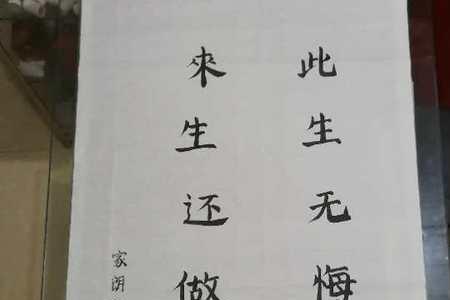 此生无悔
來生还做
家